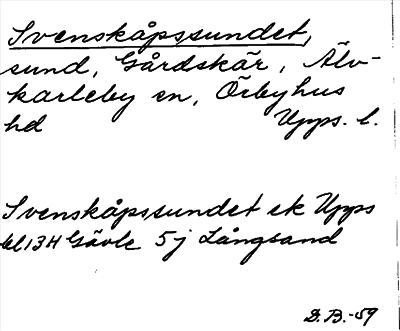 Svenskåpssundet,
sund, Gårdskär, Älv-
karleby sn, Örbyhus
hd Upps. l.
Svenskåpssundet ek Upps
bl 13H Gävle 5j Långsand
D.B.-59